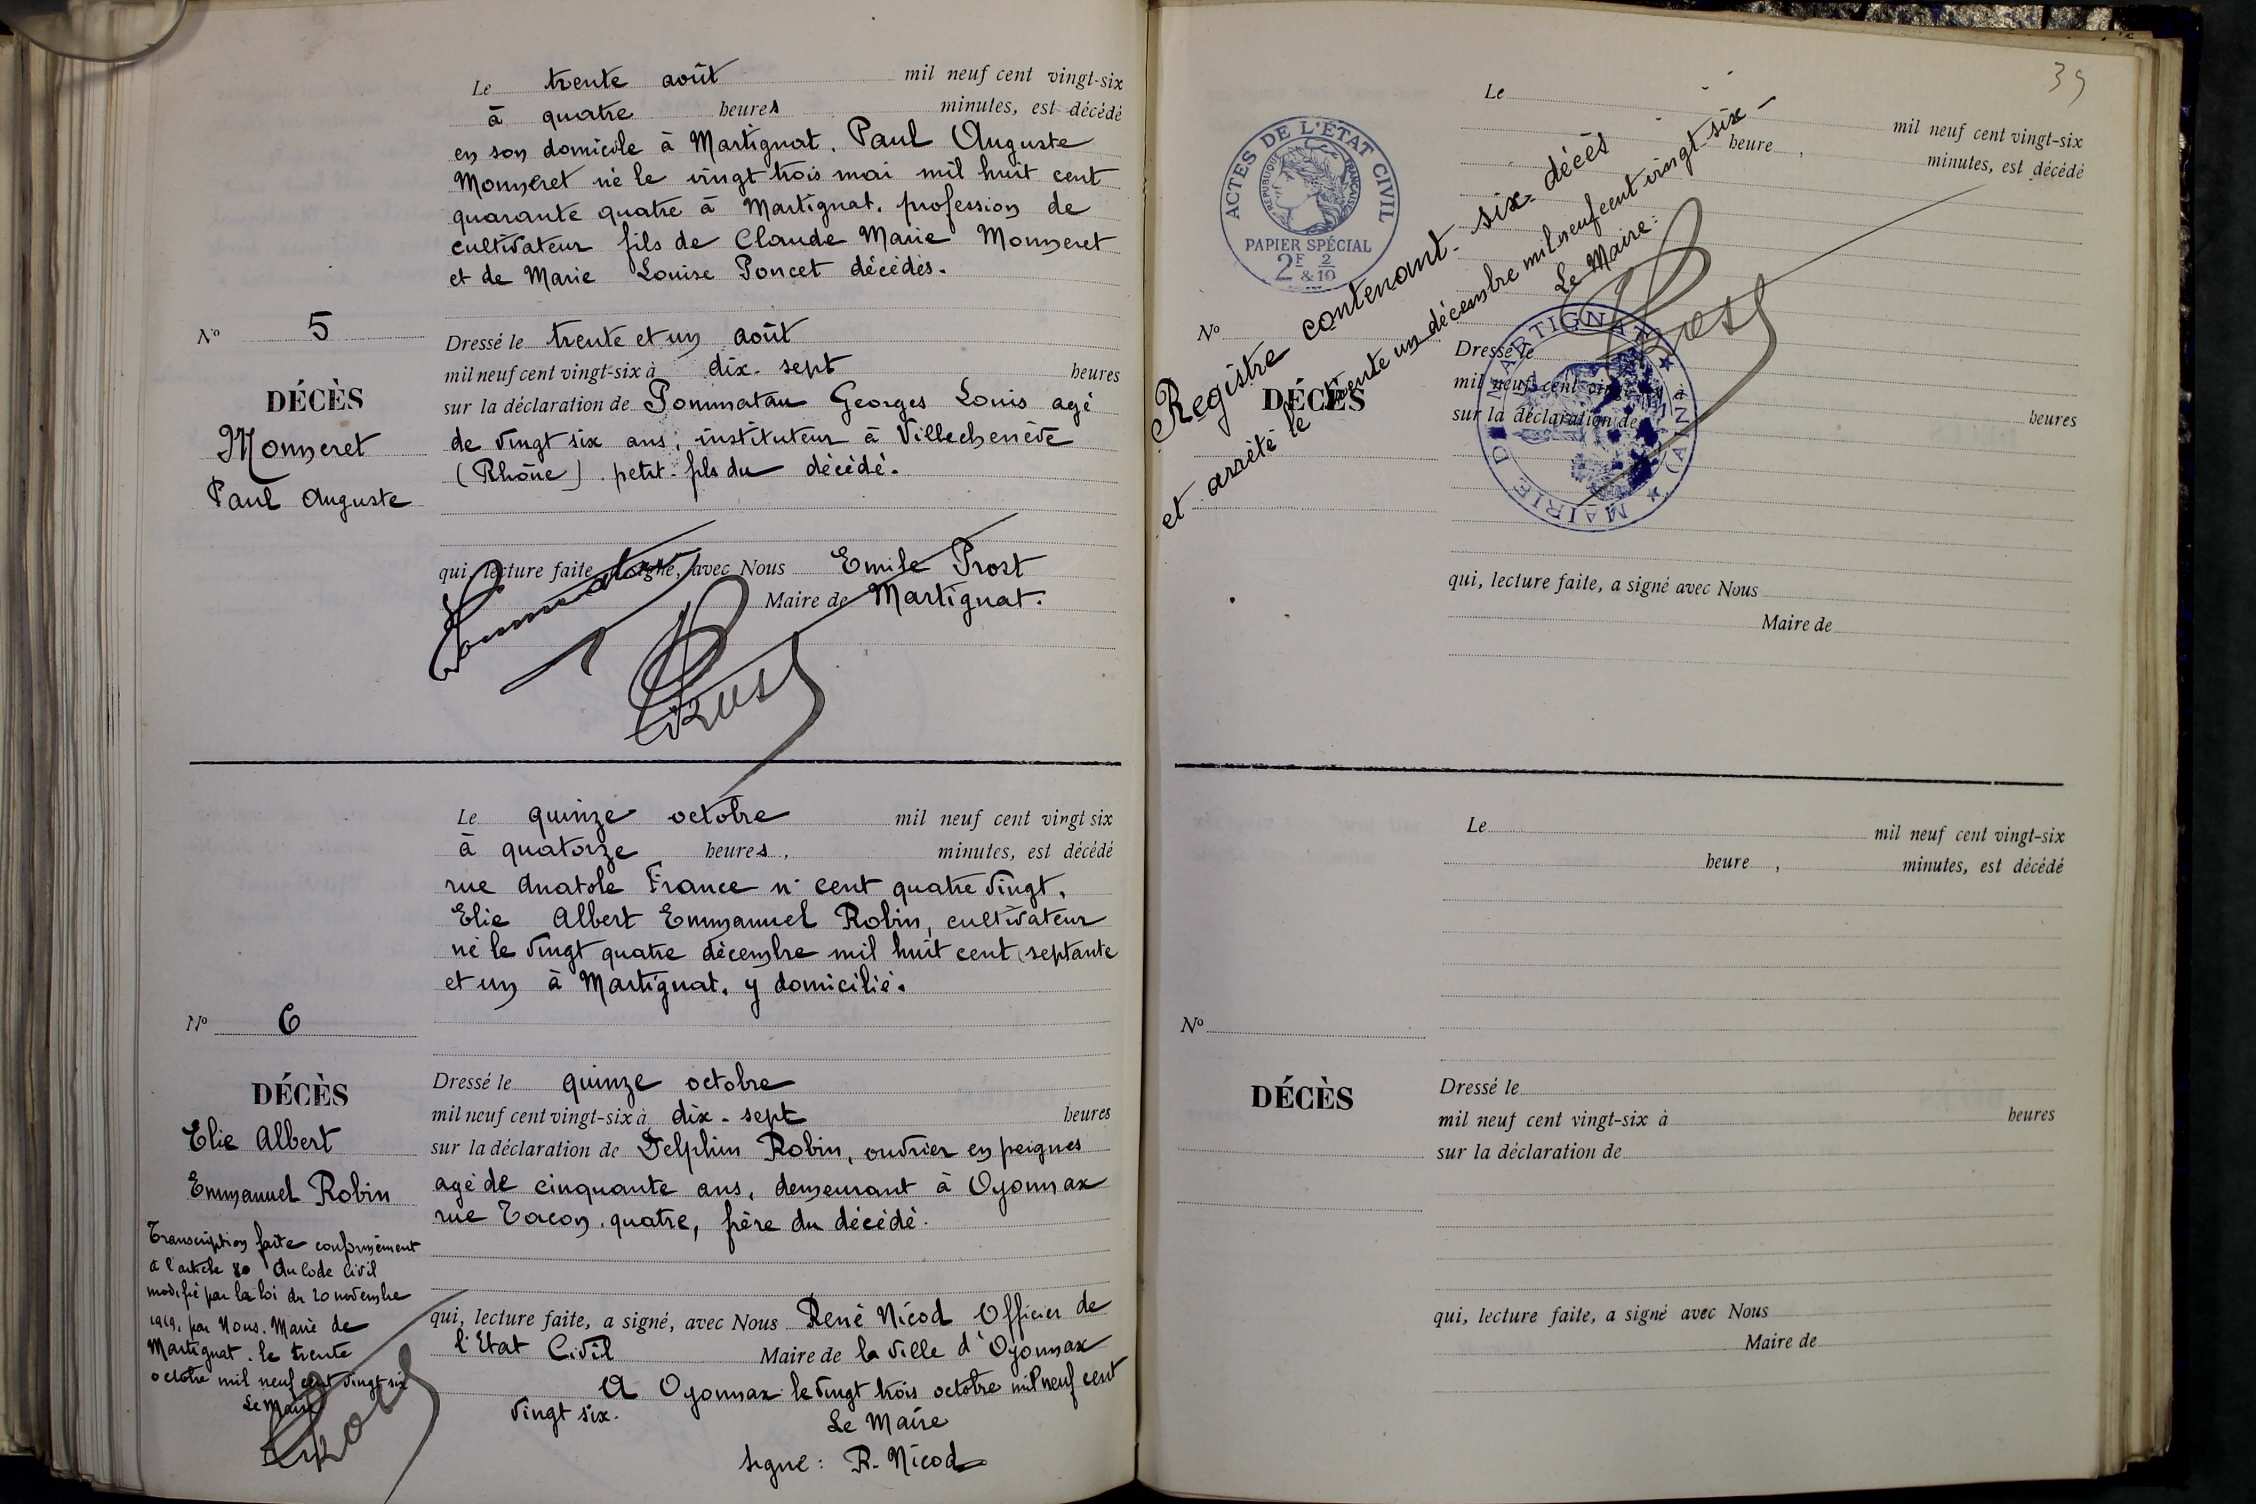 Le trente août mil neuf cent vingt-six
à quatre heures minutes, est décédé
en son domicile à Martignat, Paul Auguste
Monneret né le vingt trois mai mil huit cent
quarante quatre à Martignat, profession de
cultivateur fils de Claude Marie Monneret
et de Marie Louise Poncet décédés.
No 5
DÉCÈS
Monneret
Paul Auguste
Dressé le trente et un août
mil neuf cent vingt-six à dix-sept heures
sur la déclaration de Pommatau Georges Louis agé
de vingt six ans, instituteur à Villechenève
(Rhône), petit-fils du décédé.
qui, lecture faite, a signé, avec Nous Emile Prost
Maire de Martignat.
Pommatau
Prost
Le quinze octobre mil neuf cent vingt six
à quatorze heures, minutes, est décédé
rue Anatole France n° cent quatre vingt,
Elie Albert Emmanuel Robin, cultivateur
né le vingt quatre décembre mil huit cent septante
et un à Martignat, y domicilié.
No 6
DÉCÈS
Elie Albert
Emmanuel Robin
Transcription faite conformément
à l'article 80 du Code Civil
modifié par la loi du 20 novembre
1919, par Nous, Maire de
Martignat, le trente
octobre mil neuf cent vingt six
Le Maire
Prost
Dressé le quinze octobre
mil neuf cent vingt-six à dix-sept heures
sur la déclaration de Delphin Robin, ouvrier en peignes
agé de cinquante ans, demeurant à Oyonnax
rue Tacon, quatre, frère du décédé.
qui, lecture faite, a signé, avec Nous René Nicod Officier de
l'Etat Civil Maire de la ville d'Oyonnax
A Oyonnax le vingt trois octobre mil neuf cent
vingt six.
Le Maire
signé : R. Nicod
39
Le mil neuf cent vingt-six
heure, minutes, est décédé
ACTES DE L'ÉTAT CIVIL
RÉPUBLIQUE FRANÇAISE
PAPIER SPÉCIAL
2F 2/10
&
Registre contenant six décès
et arrêté le trente un décembre mil neuf cent vingt-six
Le Maire :
Prost
MAIRIE DE MARTIGNAT (AIN)
No
DÉCÈS
Dressé le
mil neuf cent vingt-six à heures
sur la déclaration de
qui, lecture faite, a signé avec Nous
Maire de
Le mil neuf cent vingt-six
heure, minutes, est décédé
No
DÉCÈS
Dressé le
mil neuf cent vingt-six à heures
sur la déclaration de
qui, lecture faite, a signé avec Nous
Maire de